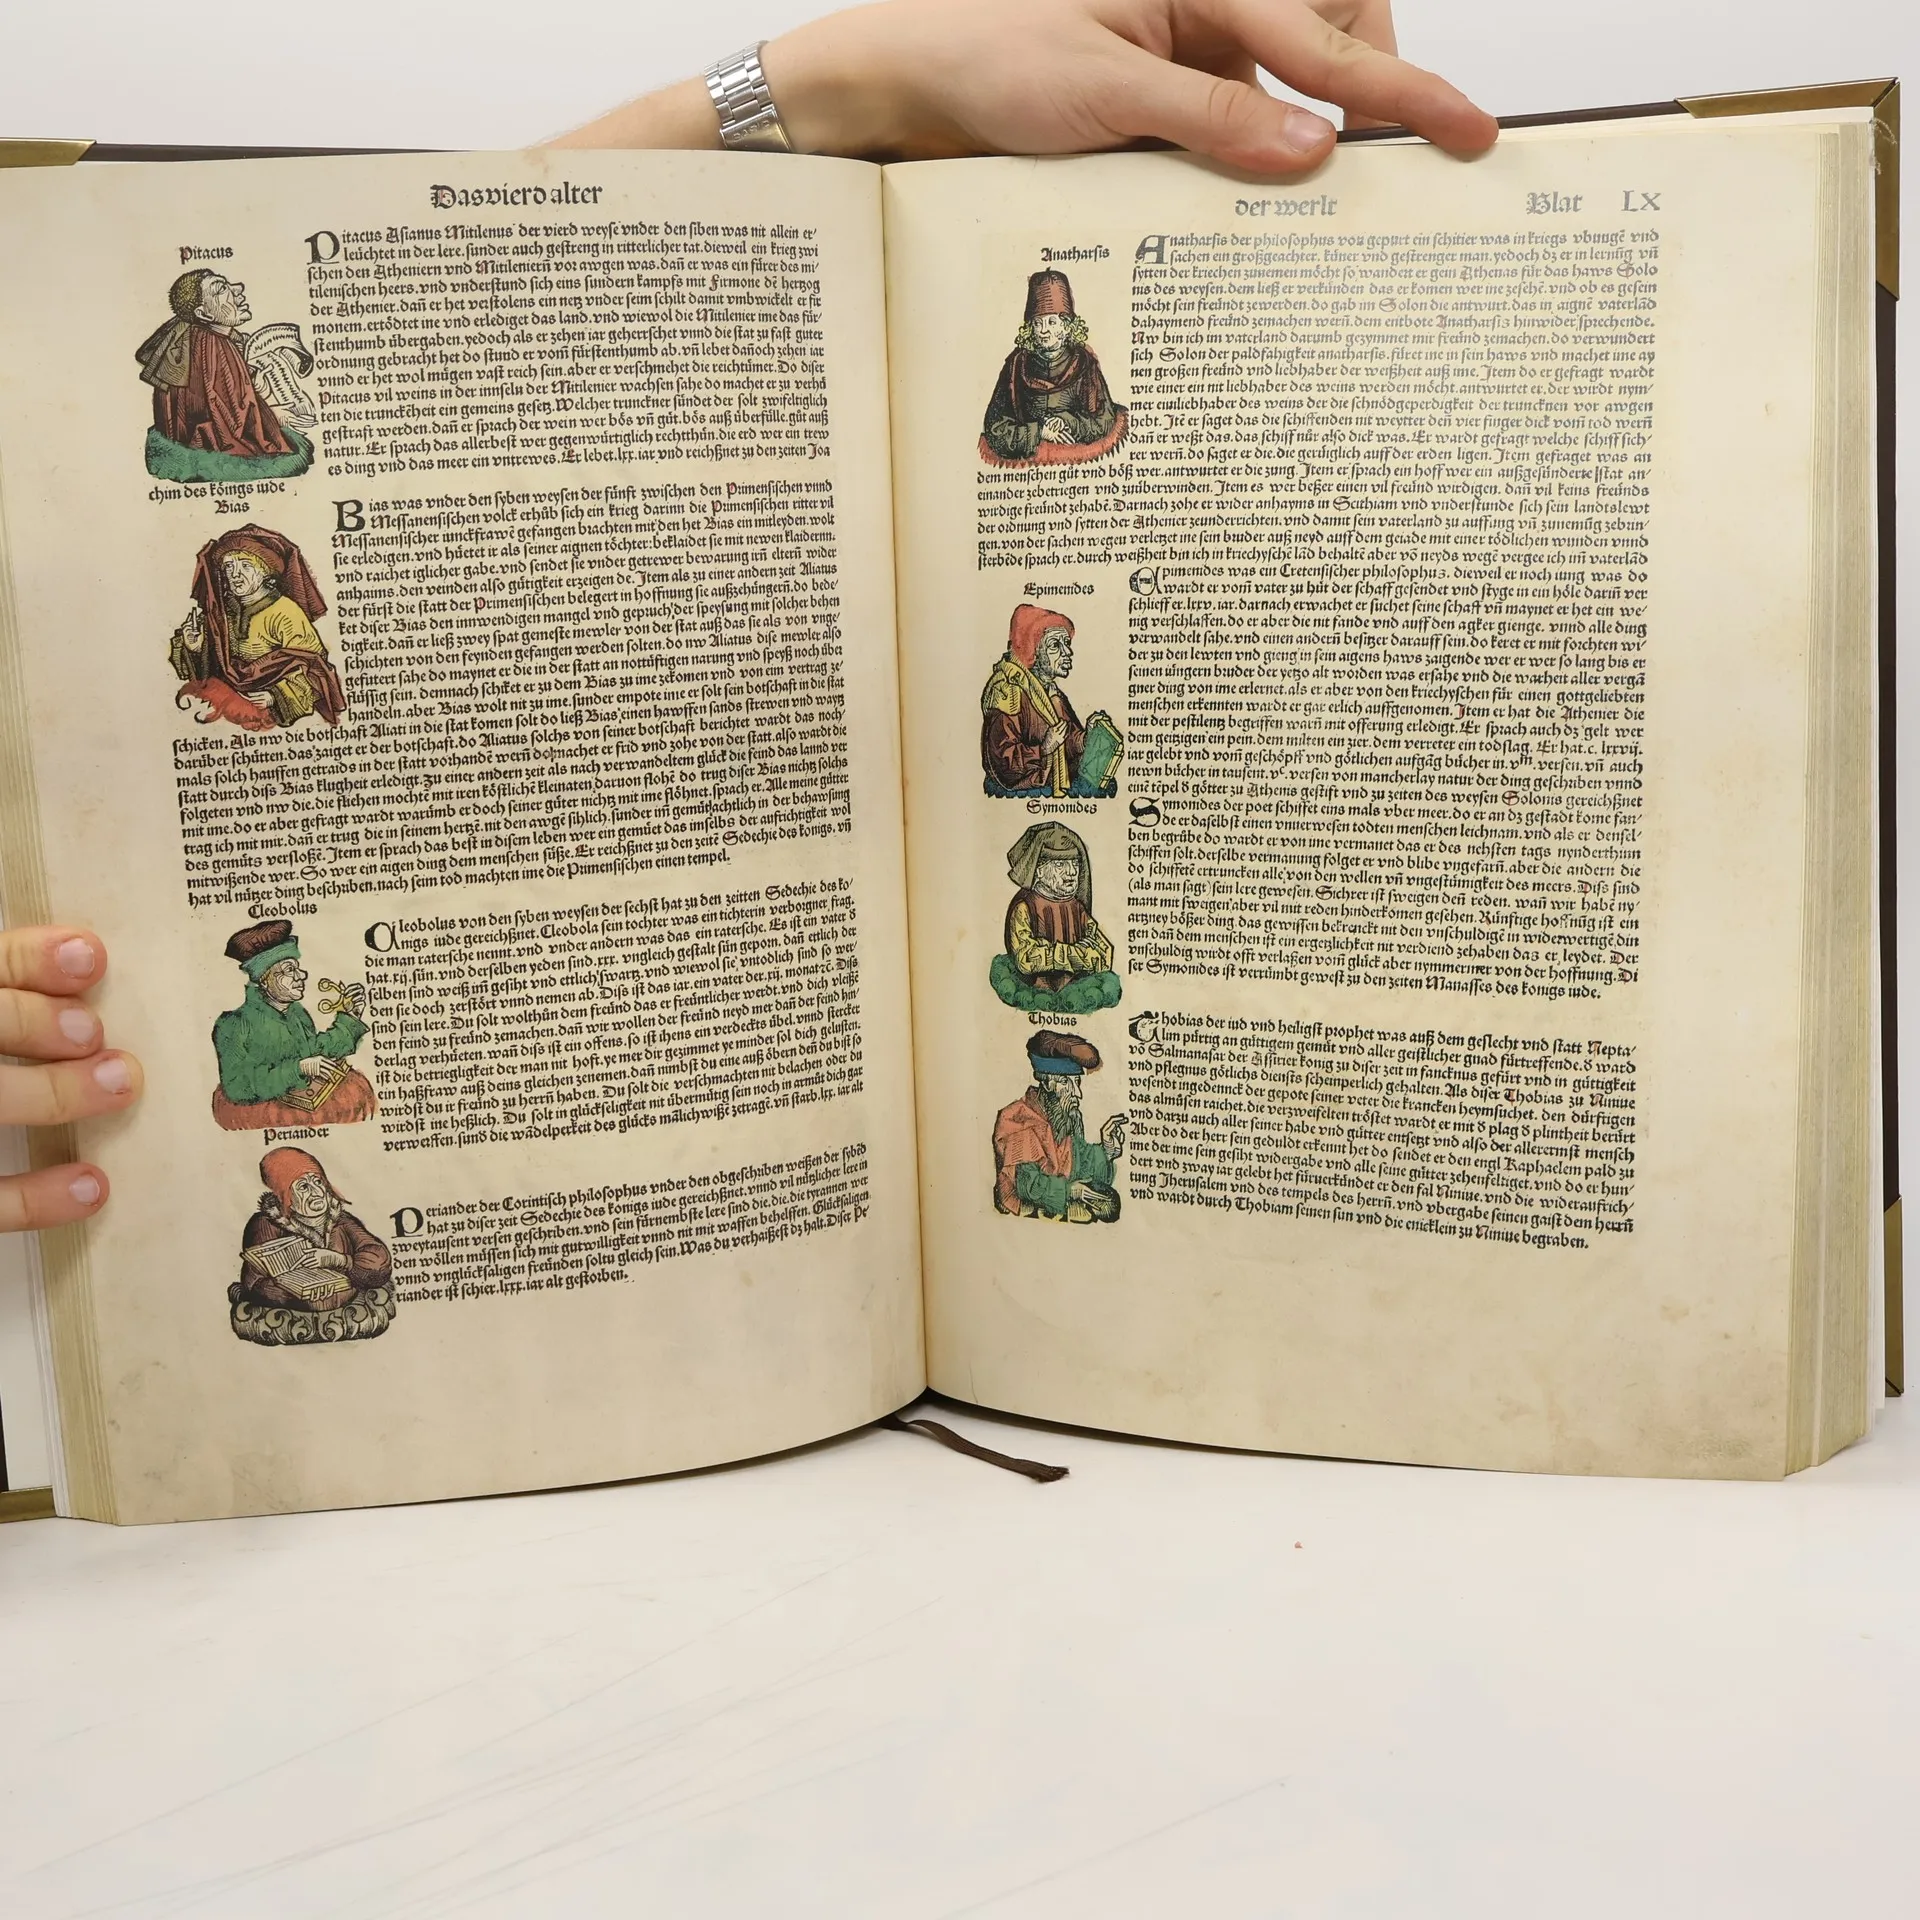 Das vierd alter
Pitacus
Pitacus Asianus Mitilenus der vierd weyse vnder den siben was nit allein er-
leüchtet in der lere. sunder auch gestreng in ritterlicher tat. dieweil ein krieg zwi
schen den Atheniern vnd Mitileniern vor awgen was. dañ er was ein fürer des mi-
tilenischen heers. vnd vnderstund sich eins sundern kampfs mit Firmone dē hertzog
der Athenier. dañ er het verstolens ein netz vnder seim schilt damit vmbwickelt er fir
monem. ertödtet ine vnd erlediget das land. vnd wiewol die Mitilenier ime das für-
stenthumb übergaben. yedoch als er zehen iar geherrschet vnnd die stat zu fast guter
ordnung gebracht het do stund er vom fürstenthumb ab. vñ lebet dañoch zehen iar
vnnd er het wol mügen vast reich sein. aber er verschmehet die reichtümer. Do diser
Pitacus vil weins in der innseln der Mitilenier wachsen sahe do machet er zu verhü
ten die trunckēheit ein gemeins gesetz. Welcher trunckner sündet der solt zwifeltiglich
gestraft werden. dañ er sprach der wein wer bös vñ güt. bös auß überfülle. güt auß
natur. Er sprach das allerbest wer gegenwürtiglich rechtthün. die erd wer ein trew
es ding vnd das meer ein vntrewes. Er lebet. lxx. iar vnd reichßnet zu den zeiten Joa
chim des königs iude
Bias
Bias was vnder den syben weysen der fünft zwischen den Primensischen vnnd
Messanensischen volck erhüb sich ein krieg darinn die Primensischen ritter vil
Messanensischer iunckfrawē gefangen brachten mit den het Bias ein mitleyden. wolt
sie erledigen. vnd hüetet ir als seiner aignen töchter: beklaidet sie mit newen klaidernn.
vnd raichet iglicher gabe. vnd sendet sie vnder getrewer bewarung irñ eltern wider
anhaims. den veinden also gütigkeit erzeigen de. Item als zu einer andern zeit Aliatus
der fürst die statt der Primensischen belegert in hoffnung sie außzehüngern. do bede-
ket diser Bias den innwendigen mangel vnd gepruch der speysung mit solcher behen
digkeit. dañ er ließ zwey spat gemeste mewler von der stat auß das sie als von vnge-
schichten von den feynden gefangen werden solten. do nw Aliatus dise mewler also
gefütert sahe do maynet er die in der statt an nottüftigen narung vnd speyß noch über
flüssig sein. demnach schiket er zu dem Bias zu ime zekomen vnd von eim vertrag ze-
handeln. aber Bias wolt nit zu ime. sunder empote ime er solt sein botschaft in die stat
schicken. Als nw die botschaft Aliati in die stat komen solt do ließ Bias einen hawffen sands strewen vnd waytz
darüber schütten. das zaiget er der botschaft. do Aliatus solchs von seiner botschaft berichtet wardt das noch-
mals solch hauffen getraids in der statt vorhandē wern do machet er frid vnd zohe von der statt. also wardt die
statt durch diß Bias klugheit erledigt. Zu einer andern zeit als nach verwandeltem glück die feind das lannd ver
folgeten vnd nw die. die fliehen mochtē mit iren köstlichē kleinaten daruon flohē do trug diser Bias nichtz solchs
mit ime. do er aber gefragt wardt warümb er doch seiner güter nichtz mit ime flöhnet. sprach er. Alle meine gütter
trag ich mit mir. dañ er trug die in seinem hertzē. nit den awgē sihlich. sunder im gemüt achtlich in der behawsung
des gemüts versloßē. Item er sprach das best in disem leben wer ein gemüet das imselbs der aufrichtigkeit wol
mitwißende wer. So wer ein aigen ding dem menschen süße. Er reichßnet zu den zeitē Sedechie des königs. vñ
hat vil nützer ding beschriben. nach seim tod machten ime die Primensischen einen tempel.
Cleobolus
Cleobolus von den syben weysen der sechst hat zu den zeitten Sedechie des kö-
nigs iude gereichßnet. Cleobola sein tochter was ein tichterin verborgner frag.
die man ratersche nennt. vnd vnder andern was das ein ratersche. Es ist ein vater d
hat. xij. sün. vnd derselben yeden sind. xxx. vngleich gestalt sün geporn. dañ ettlich der
selben sind weiß im gesiht vnd ettlich swartz. vnd wiewol sie vntödlich sind so wer-
den sie doch zerstört vnnd nemen ab. Diß ist das iar. ein vater der. xij. monat ꝛc. Diß
sind sein lere. Du solt wolthün dem freünd das er freüntlicher werdt. vnd dich vleiße
den feind zu freünd zemachen. dañ wir wollen der freünd neyd mer dañ der feind hin-
derlag verhüeten. wañ diß ist ein offens. so ist ihens ein verdeckts übel. vnnd stercker
ist die betriegligkeit der man nit hoft. ye mer dir gezimmet ye minder sol dich gelusten.
ein haßfraw auß deins gleichen zenemen. dañ nimbst du eine auß öbern deñ du bist so
wirdst du ir freünd zu herrñ haben. Du solt die verschmachten nit belachen oder du
wirdst ine heßlich. Du solt in glückseligkeit nit übermütig sein noch in armüt dich gar
verwerffen. sund die wādelperkeit des glücks mālich wißē zetragē. vñ starb. lxx. iar alt
Periander
Periander der Corintisch philosophus vnder den obgeschriben weißen der sybēd
hat zu diser zeit Sedechie des königs iude gereichßnet. vnnd vil nützlicher lere in
zweytausent versen geschriben. vnd sein fürnembste lere sind die. die. die tyrannen wer
den wöllen müssen sich mit gutwilligkeit vnnd nit mit waffen behelffen. Glücksaligen
vnnd vnglücksaligen freünden soltu gleich sein. Was du verhaißest dz halt. Diser Pe-
riander ist schier. lxxx. iar alt gestorben.
der werlt
Blat LX
Anatharsis
Anatharsis der philosophus von gepurt ein schitier was in kriegs vbungē vnd
sachen ein großgeachter. küner vnd gestrenger man. yedoch dz er in lernūg vñ
sytten der kriechen zunemen möcht so wandert er gein Athenas für das haws Solo
nis des weysen. dem ließ er verkünden das er komen wer ine zesehē. vnd ob es gesein
möcht sein freündt zewerden. do gab im Solon die antwurt. das in aignē vaterlād
dahaymend freünd zemachen wern. dem entbote Anatharsis hinwider sprechende.
Nw bin ich im vaterland darumb gezymmet mir freünd zemachen. do verwundert
sich Solon der paldfahigkeit anatharsis. füret ine in sein haws vnd machet ime ay
nen großen freünd vnd liebhaber der weißheit auß ime. Item do er gefragt wardt
wie einer ein nit liebhaber des weins werden möcht. antwurtet er. der wirdt nym-
mer ein liebhaber des weins der die schnödgeperdigkeit der truncknen vor awgen
hebt. Itē er saget das die schiffenden nit weytter den vier finger dick vom tod wern
dañ er weßt das. das schiff nür also dick was. Er wardt gefragt welche schiff sich-
rer wern. do saget er die. die gerüiglich auff der erden ligen. Item gefraget was an
dem menschen güt vnd böß wer. antwurtet er die zung. Item er sprach ein hoff wer ein außgesünderte stat an-
einander zebetriegen vnd zuüberwinden. Item es wer beßer einen vil freünd wirdigen. dañ vil keins freünds
wirdige freündt zehabē. Darnach zohe er wider anhayms in Scithiam vnd vnderstunde sich sein landtslewt
der ordnung vnd sytten der Athenier zeunderrichten. vnd damit sein vaterland zu auffung vñ zunemūg zebrin-
gen. von der sachen wegen verletzet ine sein bruder auß neyd auff dem geiaide mit einer tödlichen wunden vnnd
sterbēde sprach er. durch weißheit bin ich in kriechyschē lād behaltē aber vō neyds wegē vergee ich im vaterlād
Epimenides
Epimenides was ein Cretensischer philosophus. dieweil er noch iung was do
wardt er vom vater zu hüt der schaff gesendet vnd styge in ein höle darin ver
schlieff er. lxxv. iar. darnach erwachet er suchet seine schaff vñ maynet er het ein we-
nig verschlaffen. do er aber die nit fande vnd auff den agker gienge. vnnd alle ding
verwandelt sahe. vnd einen andern besitzer darauff sein. do keret er mit forchten wi-
der zu den lewten vnd gieng in sein aigens haws zaigende wer er wer so lang bis er
seinen iüngern bruder der yetzo alt worden was ersahe vnd die warheit aller vergā
gner ding von ime erlernet. als er aber von den kriechyschen für einen gottgeliebten
menschen erkennten wardt er gar erlich auffgenomen. Item er hat die Athenier die
mit der pestilentz begriffen warñ mit offerung erledigt. Er sprach auch dz gelt wer
dem geitzigen ein pein. dem milten ein zier. dem verreter ein todslag. Er hat. c. lxxvij.
iar gelebt vnd vom geschöpff vnd götlichen aufgāg bücher in. vᵐ. versen. vñ auch
newn bücher in tausent. vᶜ. versen von mancherlay natur der ding geschriben vnnd
einē tēpel d götter zu Athenis gestift vnd zu zeiten des weysen Solonis gereichßnet
Symonides
Symonides der poet schiffet eins mals vber meer. do er an dz gestadt kome fan-
de er daselbst einen vnuerwesen todten menschen leichnam. vnd als er densel-
ben begrübe do wardt er von ime vermanet das er des nehsten tags nynderthinn
schiffen solt. derselbe vermanung folget er vnd blibe vngefarñ. aber die andern die
do schiffetē ertruncken alle von den wellen vñ vngestümigkeit des meers. Diß sind
(als man sagt) sein lere gewesen. Sichrer ist sweigen deñ reden. wañ wir habē ny-
mant mit sweigen aber vil mit reden hinderkomen gesehen. Künftige hoffnūg ist ein
artzney bößer ding. das gewissen bekrenckt nit den vnschuldigē in widerwertigē din
gen dañ dem menschen ist ein ergetzlichkeit nit verdiend zehaben das er leydet. Der
vnschuldig wirdt offt verlaßen vom glück aber nymmermer von der hoffnung. Di
ser Symonides ist verrümbt gewest zu den zeiten Manasses des königs iude.
Thobias
Thobias der iud vnd heiligst prophet was auß dem geslecht vnd statt Nepta-
lim pürtig an güttigem gemüt vnd aller geistlicher gnad fürtreffende. d ward
vō Salmanasar der Assirier könig zu diser zeit in fancknus gefürt vnd in güttigkeit
vnd pflegnus götlichs diensts scheinperlich gehalten. Als diser Thobias zu Niniue
wesendt ingedenck der gepote seiner veter die krancken heymsuchet. den dürftigen
das almüsen raichet. die verzweifelten tröstet wardt er mit d plag d plintheit berürt
vnd darzu auch aller seiner habe vnd gütter entsetzt vnd also der allerermst mensch
Aber do der herr sein geduldt erkennt het do sendet er den engl Raphaelem pald zu
ime der ime sein gesiht widergabe vnd alle seine gütter zehenfeltiget. vnd do er hun-
dert vnd zway iar gelebt het fürverkündet er den fal Niniue. vnd die wideraufrich-
tung Jherusalem vnd des tempels des herrñ. vnd vbergabe seinen gaist dem herrñ
vnd wardt durch Thobiam seinen sun vnd die enicklein zu Niniue begraben.